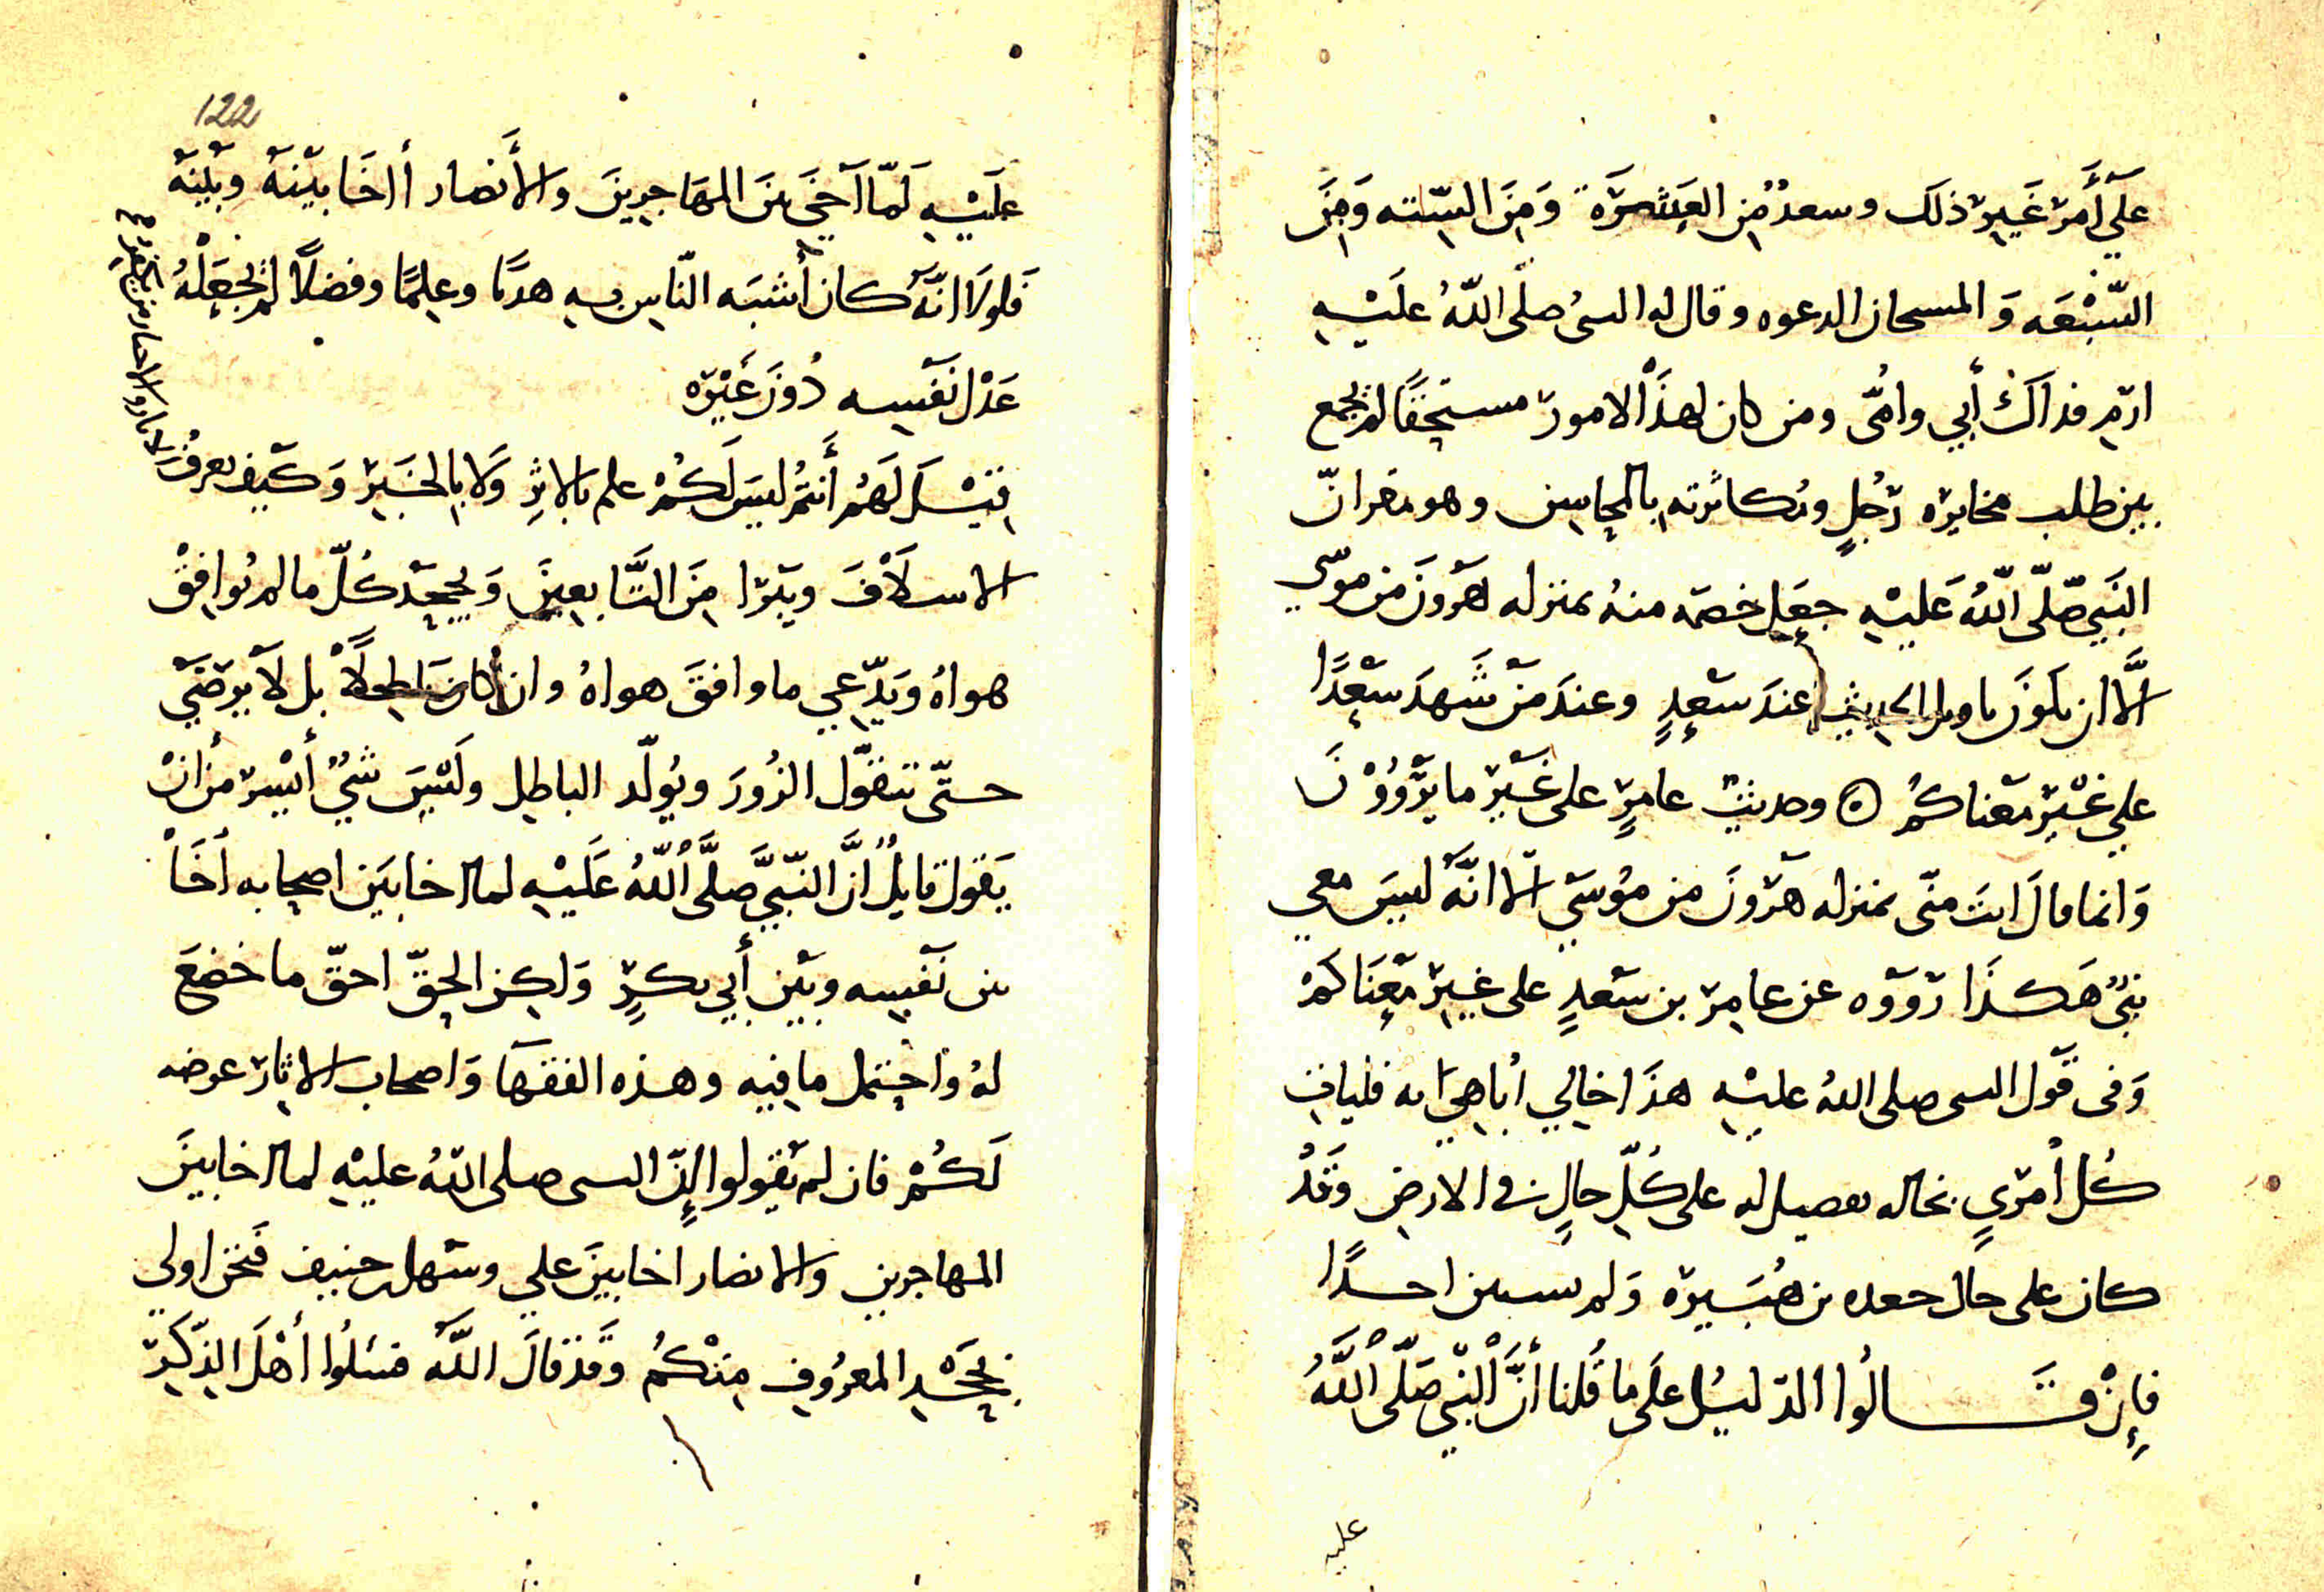 على أمر غير ذلك وسعد من العشرة ومن الستة ومن
السبعة والمستجاب الدعوة وقال له النبي صلّى اللّٰه عليه
ارم فداك أبي وامّى ومن كان لهذه الامور مستحقا لم يجمع
بين طلب مخايرة رجل ومكاثرته بالمحاسن وهو مقر انّ
النبي صلّى اللّٰه عليه جعل خصمه منه بمنزله هرون من موسى
الّا ان يكون تاويل الحديث عند سعدٍ وعند من شهد سعدًا
على غير معناكم ۞ وحديث عامرٍ على غير ما يرووْن
وانما قال انت منّى بمنزله هرون من موسى الّا انّه ليس معي
نبيّ هكذا رووه عن عامر بن سعدٍ على غير معناكم
وفى قول النبى صلى اللّٰه عليه هذا خالي أباهي به فليات
كل أمرىٍ بخاله تفضيل له على كلّ حالٍ في الارض وقد
كان على خال جعده بن هبيره ولم يستثن احدًا
فإن قالوا الدليل على ما قلنا أنّ النبي صلّى اللّٰهُ
عليه
122
عليه لمّا آخى بين المهاجرين والأنصار أاخا بينه وبينه
فلولا انّه كان أشبه النّاس به هديًا وعلمًا وفضلًا لم يجعله
عدل نفسه دون غيره
قيل لهم أنتم ليس لكم علم بالاثر ولا بالخبر وكيف يعرف
الاسلاف ويبرا من التابعين ويجحد كلّ ما لم يوافق
هواه ويدّعي ما وافق هواه وان كان باطلًا بل لا يرضى
حتّى يتقوّل الزور ويولّد الباطل وليس شيٌ أيسر من ان
يقول قايل انّ النّبيّ صلّى اللّٰه عليه لما اخا بين اصحابه اخا
بين نفسه وبين أبي بكرٍ ولكن الحقّ احقّ ما خضع
له واحتمل ما فيه وهذه الفقها واصحاب الاثار عرضه
لكم فان لم يقولوا إنّ النبى صلى اللّٰه عليه لما اخا بين
المهاجرين والانصار اخا بين علي وسهل بن حنيف فنحن اولى
بجحد المعروف منكم وقد قال اللّٰه فسئلوا أهل الذكر